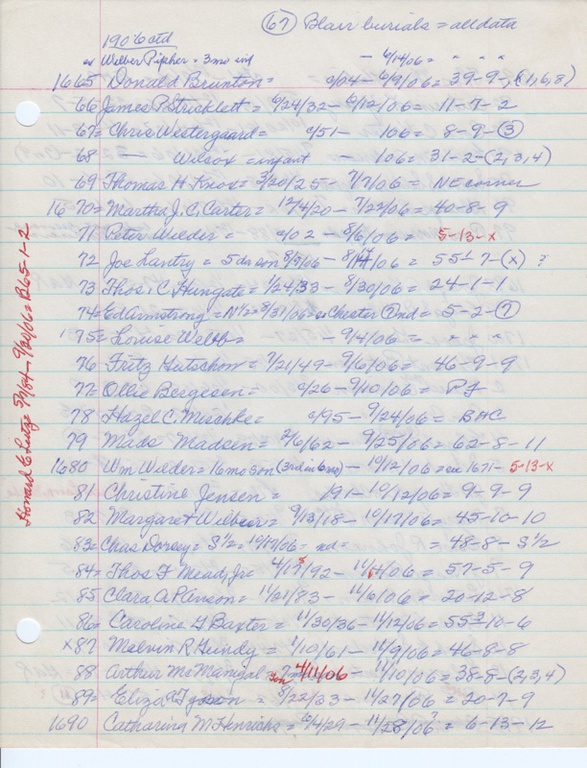 (67) Blair burials = all data
1906 ctd
Wilber Pipher = 3 mo inf - 4/14/06 = " " "
1665 Donald Brunton = c/04 - 6/9/06 = 39-9-(1,6,8)
'66 James P. Stricklett = 6/24/32 - 6/12/06 = 11-7-2
'67 = Chris Westergaard = c/51 - 106 = 8-9-(3)
'68 - Wilcox = infant - 106 = 31-2-(2,3,4)
'69 Thomas H Knox = 3/20/25 - 7/7/06 = NE corner
1670 = Martha J. C. Carter = 12/4/20 - 7/22/06 = 40-8-9
71 Peter Wieder = c/02 - 8/6/06 = 5-13-x
72 Joe Lantry = 5 da son 8/9/06 - 8/14/06 = 55 1-7-(x) ?
73 Thos. C Hungate = 1/24/33 - 8/30/06 = 24-1-1
74 Ed Armstrong = N½ = 8/31/06 = Chester (?) nd = 5-2-(7)
'75 = Louise Welth = - 9/4/06 = " " "
76 Fritz Hutschow = 7/21/49 - 9/6/06 = 46-9-9
77 = Ollie Bergesen = c/26 - 9/10/06 = PF
78 Hazel C. Mischke = c/95 - 9/24/06 = BHC
79 Mads Madsen = 2/6/62 - 9/25/06 = 62-8-11
1680 Wm Wilder = 16 mo son - 10/12/06 = see 1671 - 5-13-x
81 Christine Jensen = 1/91 - 10/12/06 = 9-9-9
82 Margaret Wilbeer = 9/13/18 - 10/17/06 = 45-10-10
83 = Chas Dorsey = S½ = 10/19/06 = nd = = 48-8-S½
84 = Thos F Mead, Jr = 4/15/92 - 11/4/06 = 57-5-9
85 Clara A. P. Anson = 11/21/83 - 11/6/06 = 20-12-8
86 = Caroline G Baxter = 11/30/36 - 11/12/06 = 55 3-10-6
x87 Melvin R Gundy = 1/10/61 - 11/9/06 = 46-8-8
88 Arthur McManigal = son 4/11/06 - 11/10/06 = 38-8-(2,3,4)
89 = Eliza A Tyson = 8/22/33 - 11/27/06 = 20-7-9
1690 Catharina M Henrichs = 6/4/29 - 11/28/06? = 6-13-12
Howard E Lutz 5/1/84 - 9/20/06 = B65-1-2